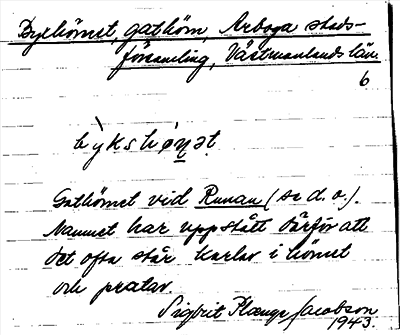 Byxhörnet, gathörn, Arboga stads-
församling, Västmanlands län
6
by̍kshø̀ṇət.
Gathörnet vid Runan (se d. o.).
Namnet har uppstått därför att
det ofta står karlar i hörnet
och pratar.
Sigbrit Plænge Jacobson
1943.